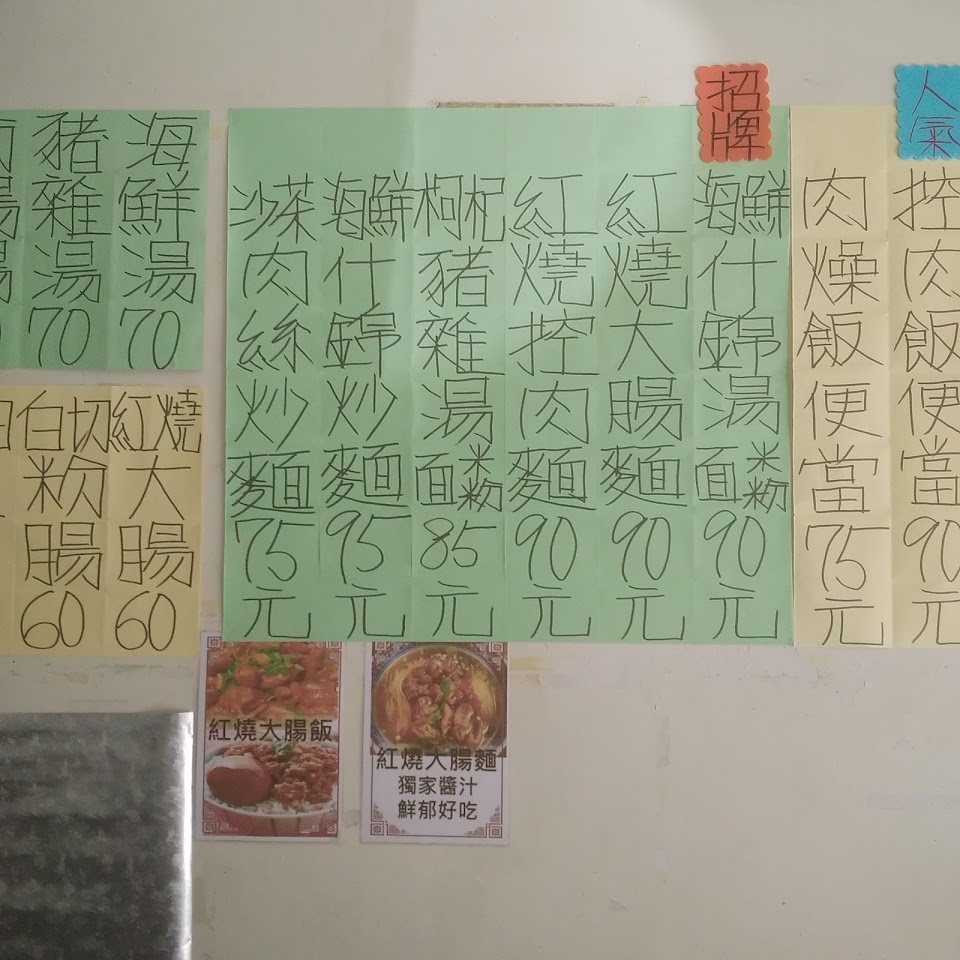 人氣
控肉飯便當90元
肉燥飯便當75元
招牌
海鮮什錦湯面米粉90元
紅燒大腸麵90元
紅燒控肉麵90元
枸杞豬雜湯面米粉85元
海鮮什錦炒麵95元
沙茶肉絲炒麵75元
海鮮湯70
豬雜湯70
紅燒大腸60
白切粉腸60
紅燒大腸飯
紅燒大腸麵
獨家醬汁
鮮郁好吃